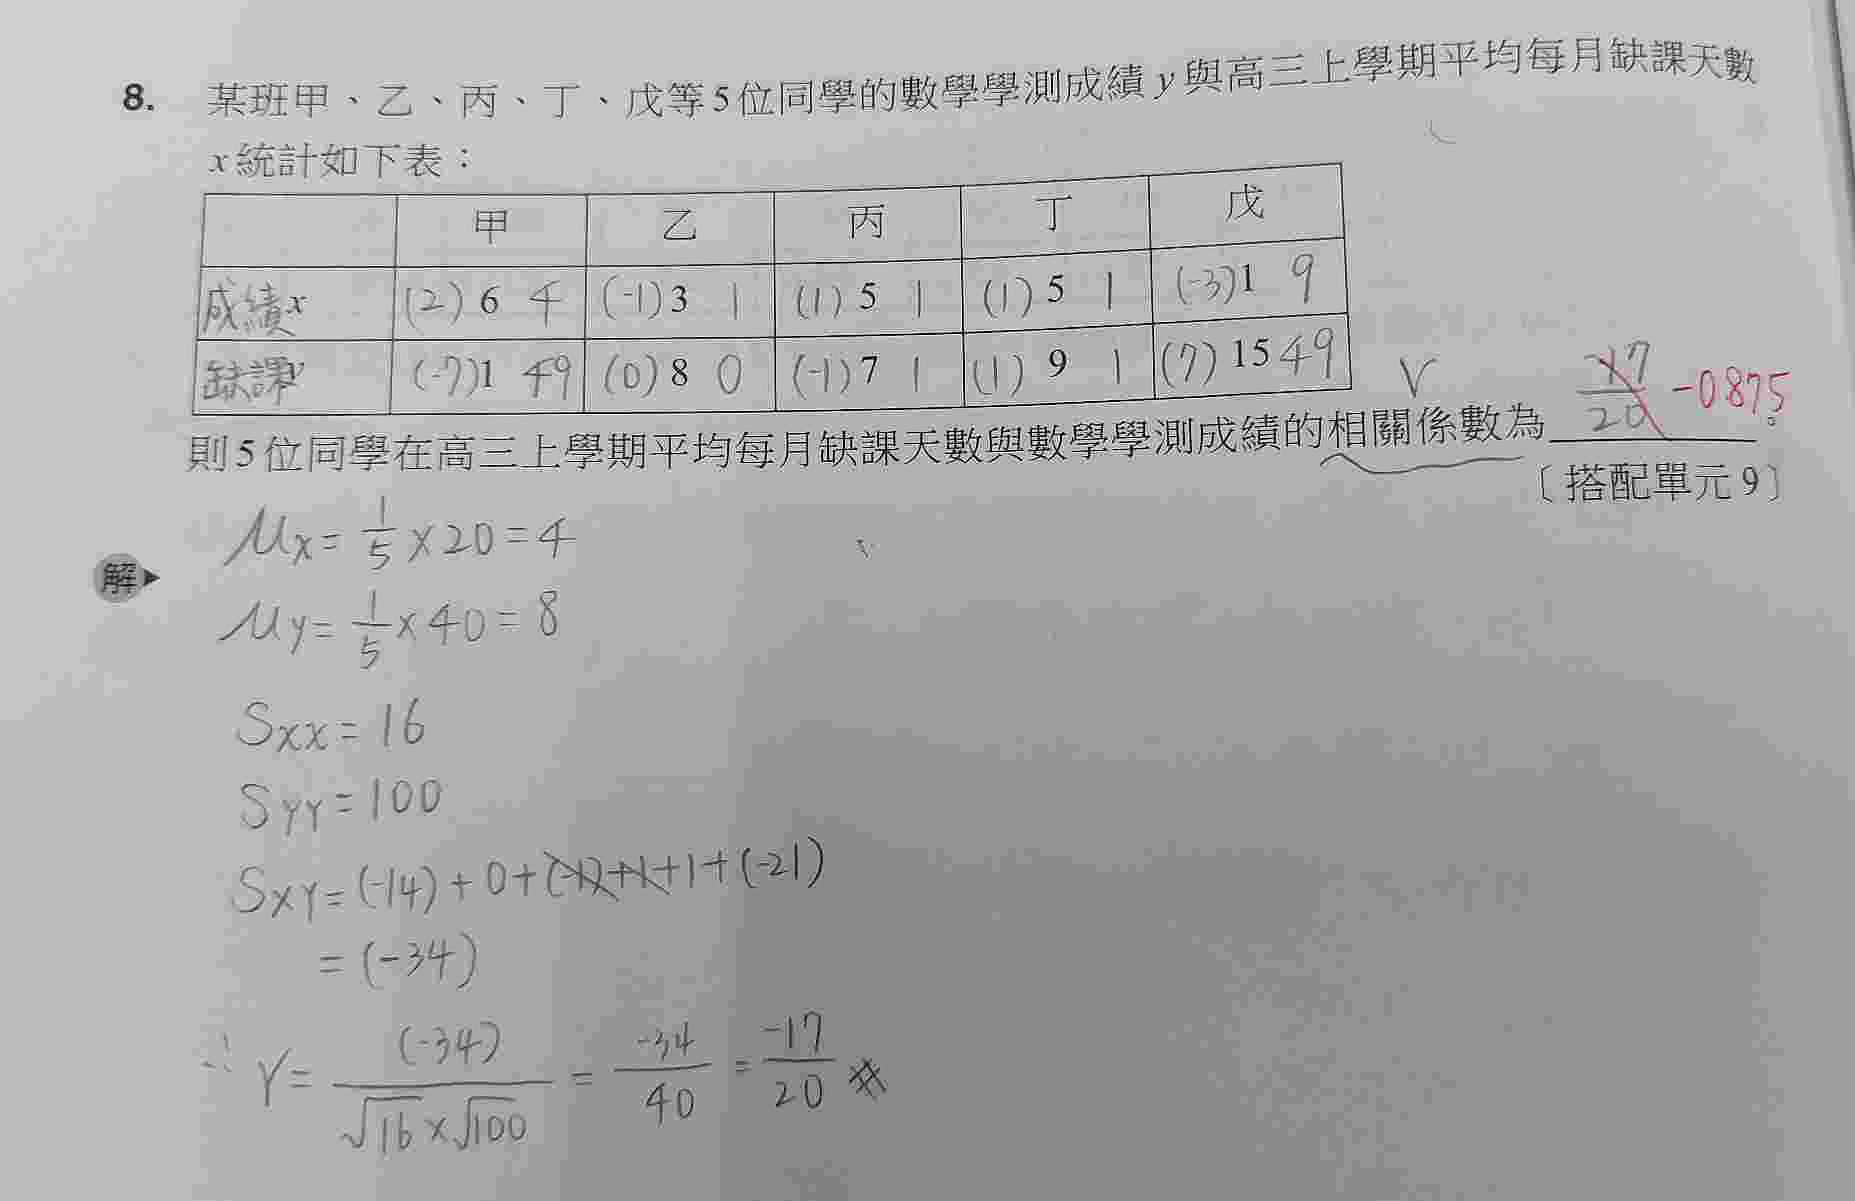 8. 某班甲、乙、丙、丁、戊等5位同學的數學學測成績y與高三上學期平均每月缺課天數
x統計如下表：
甲 乙 丙 丁 戊
成績x (2) 6 4 (-1) 3 1 (1) 5 1 (1) 5 1 (-3) 1 9
缺課y (-7) 1 49 (0) 8 0 (-1) 7 1 (1) 9 1 (7) 15 49
則5位同學在高三上學期平均每月缺課天數與數學學測成績的相關係數為 -17/20 -0.875。
〔搭配單元9〕
解
μx = 1/5 × 20 = 4
μy = 1/5 × 40 = 8
Sxx = 16
Syy = 100
SxY = (-14) + 0 + (-1) + 1 + 1 + (-21)
= (-34)
∴ r = (-34)/√16×√100 = -34/40 = -17/20 #